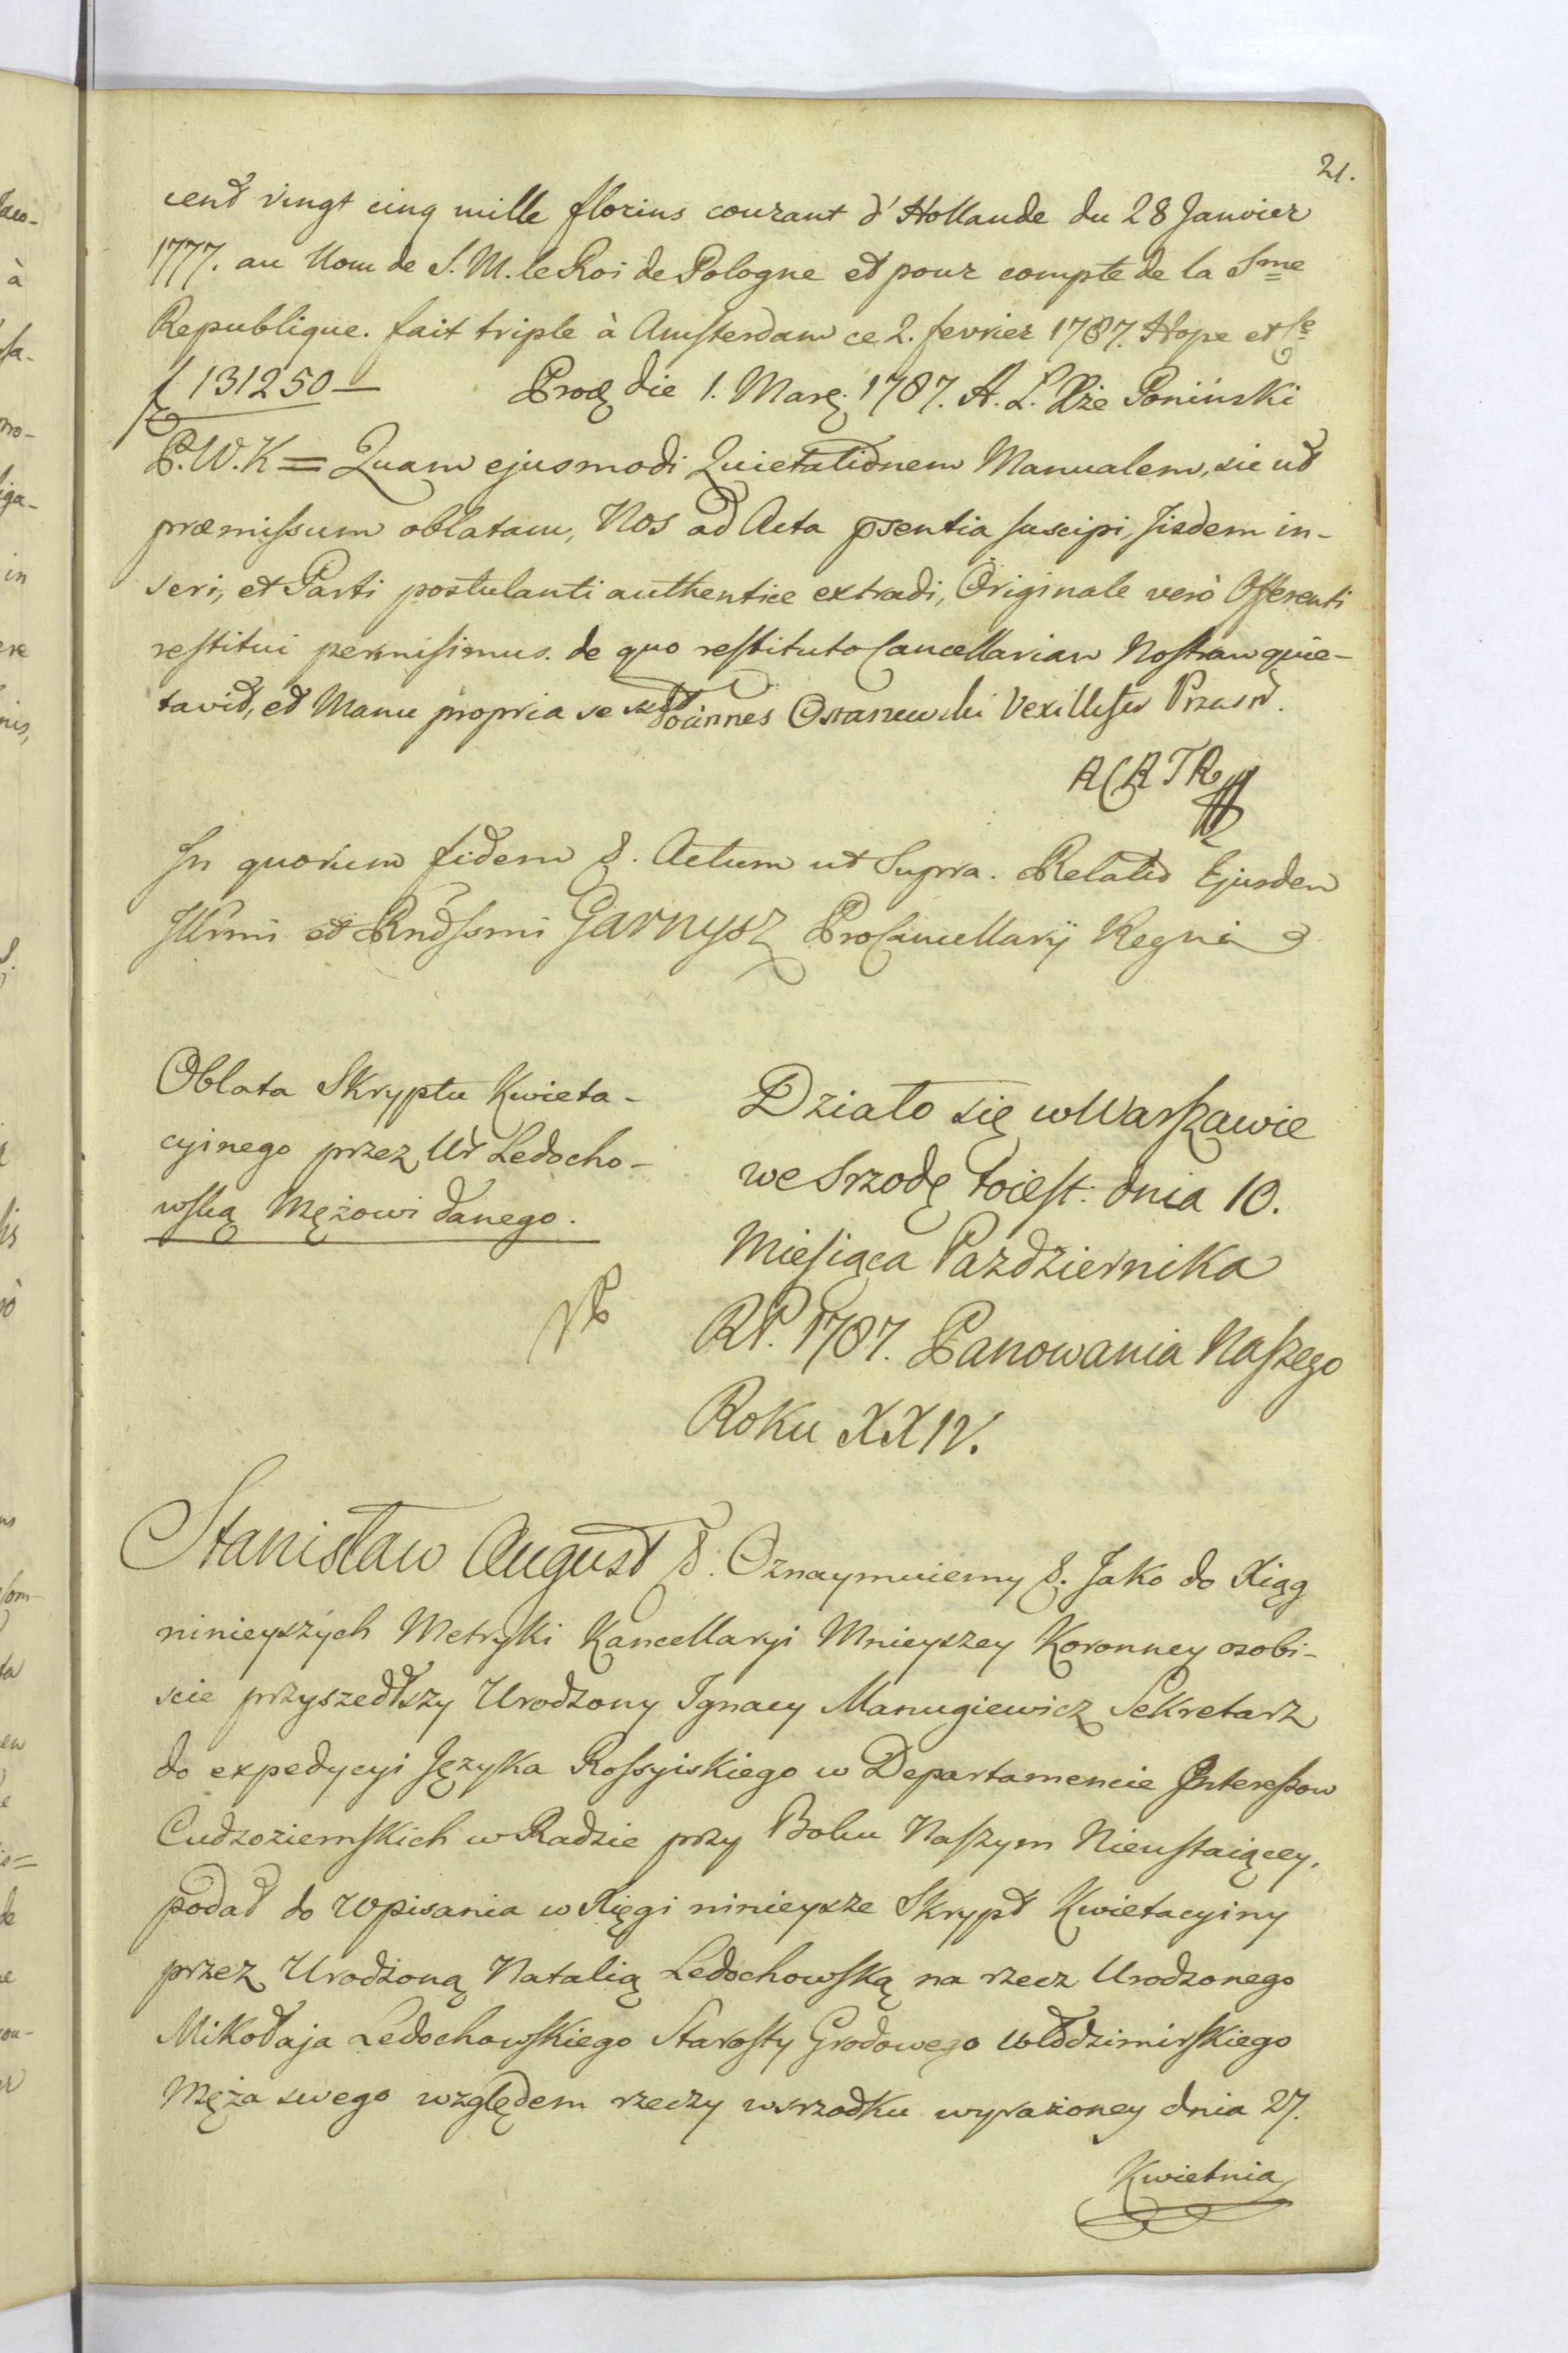 21.
cent vingt cinq mille florins courant d'Hollande du 28 Janvier
1777. au Nom de S. M. le Roi de Pologne et pour compte de la Sme
Republique. fait triple à Amsterdam ce 2. fevrier 1787. Hope et Ce
f 131250—
Prod die 1. Març. 1787. A. L. Xże Poniński
P. W. K = Quam ejusmodi Quietationem Manualem, sic ut
præmissum oblatam, Nos ad Acta psentia suscipi, Jisdem in-
seri, et Parti postulanti authentice extradi, Originale verò Offerenti
restitui permisimus. de quo restituto Cancellariam Nostram quie-
tavit, et Manu propria se subt Joannes Vexill Przasn.
RCRTR
In quorum fidem &. Actum ut Supra. Relatio Ejusdem
Jllrmi et Rndssmi Garnysz ProCancellarij Regni
Oblata Skryptu Kwieta-
cyinego przez Ur Ledocho-
wską Mężowi danego.
Działo się w Warszawie
we Srzodę toiest: dnia 10.
Miesiąca Pazdziernika
RP. 1787. Panowania Naszego
Roku XXIV.
Stanisław August &. Oznaymuiemy &. Jako do Xiąg
ninieyszych Metryki Kancellaryi Mnieyszey Koronney osobi-
scie przyszedłszy Urodzony Ignacy Manugiewicz Sekretarz
do expedycyi Języka Rossyiskiego w Departamencie Interessow
Cudzoziemskich w Radzie przy Boku Naszym Nieustaiącey,
podał do wpisania w Xięgi ninieysze Skrypt Kwietacyiny
przez Urodzoną Natalią Ledochowską na rzecz Urodzonego
Mikołaja Ledochowskiego Starosty Grodowego Włodzimirskiego
Męża swego względem rzeczy wsrzodku wyrażoney dnia 27.
Kwietnia